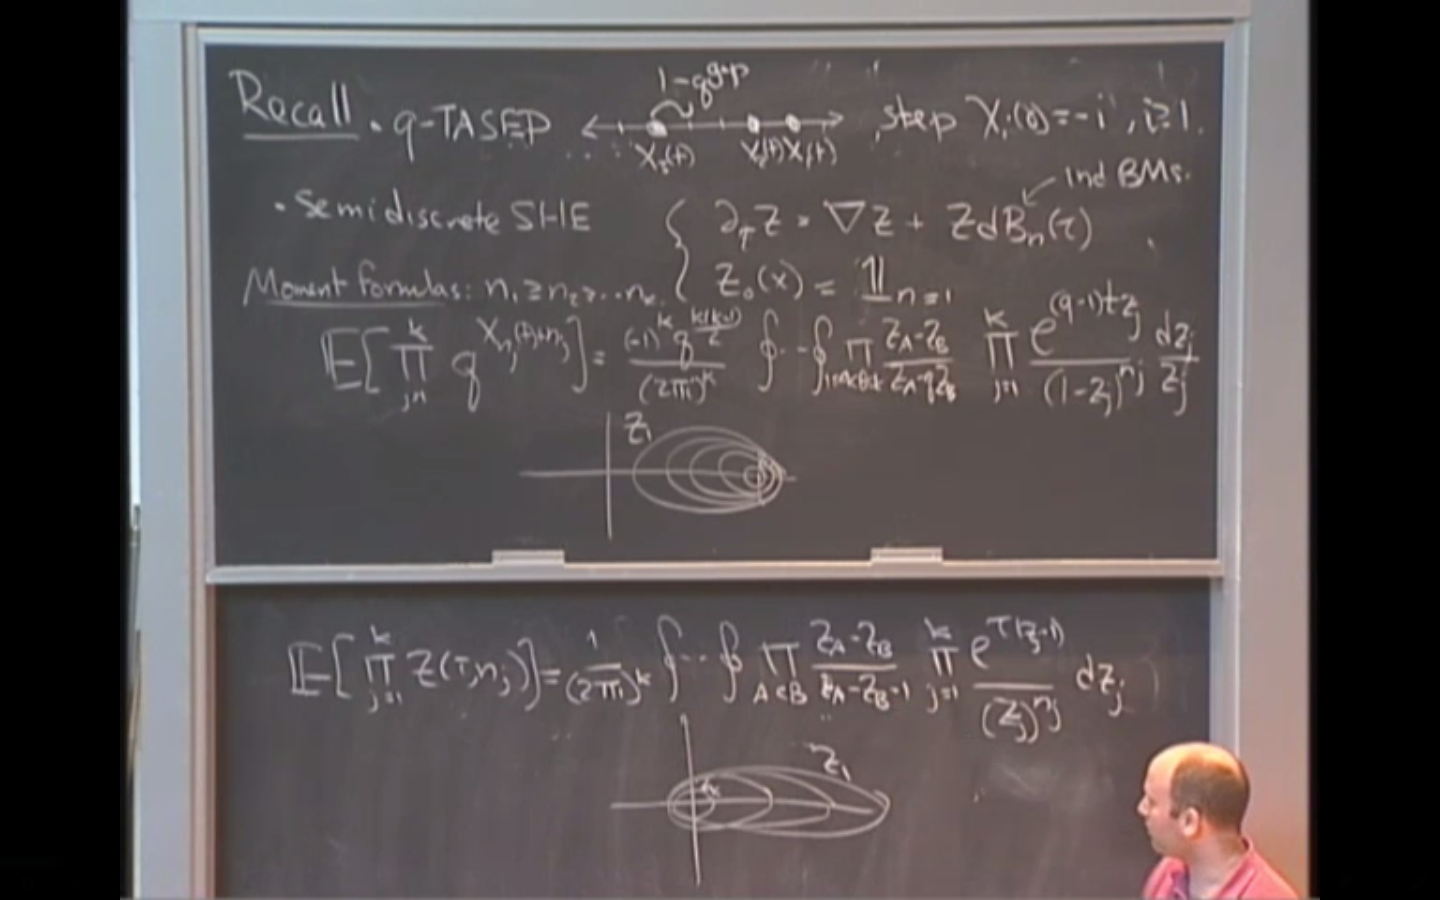 1-q^gap
Recall . q-TASEP X₃(t) X₂(t) X₁(t) , step Xᵢ(0)=-i , i≥1.
ind BMs.
. Semidiscrete SHE { ∂_τ Z = ∇Z + Z dBₙ(τ)
Z₀(x) = 𝟙_{n=1}
Moment formulas: n₁ ≥ n₂ ≥ ... nₖ
𝔼[∏_{j=1}^{k} q^{X_{n_j}(t)+n_j}] = (-1)^k q^{k(k-1)/2} / (2πi)^k ∮ ... ∮ ∏_{1≤A<B≤k} (z_A-z_B)/(z_A-qz_B) ∏_{j=1}^{k} e^{(q-1)tz_j}/(1-z_j)^{n_j} dz_j/z_j
z₁
𝔼[∏_{j=1}^{k} Z(τ,n_j)] = 1/(2πi)^k ∮ ... ∮ ∏_{A<B} (z_A-z_B)/(z_A-z_B-1) ∏_{j=1}^{k} e^{τ(z_j-1)}/(z_j)^{n_j} dz_j
zₖ z₁